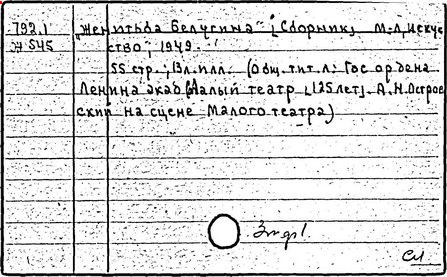 792.1 „Женитьба Белугина“; [Сборник]. М.-Л, Искус
Ж 545 ство, 1949.
55 стр.; Вкл. илл. (Общ. тит. л: Гос ордена
Ленина акад. Малый театр [125 лет]. А.Н. Остров
ский на сцене Малого театра)